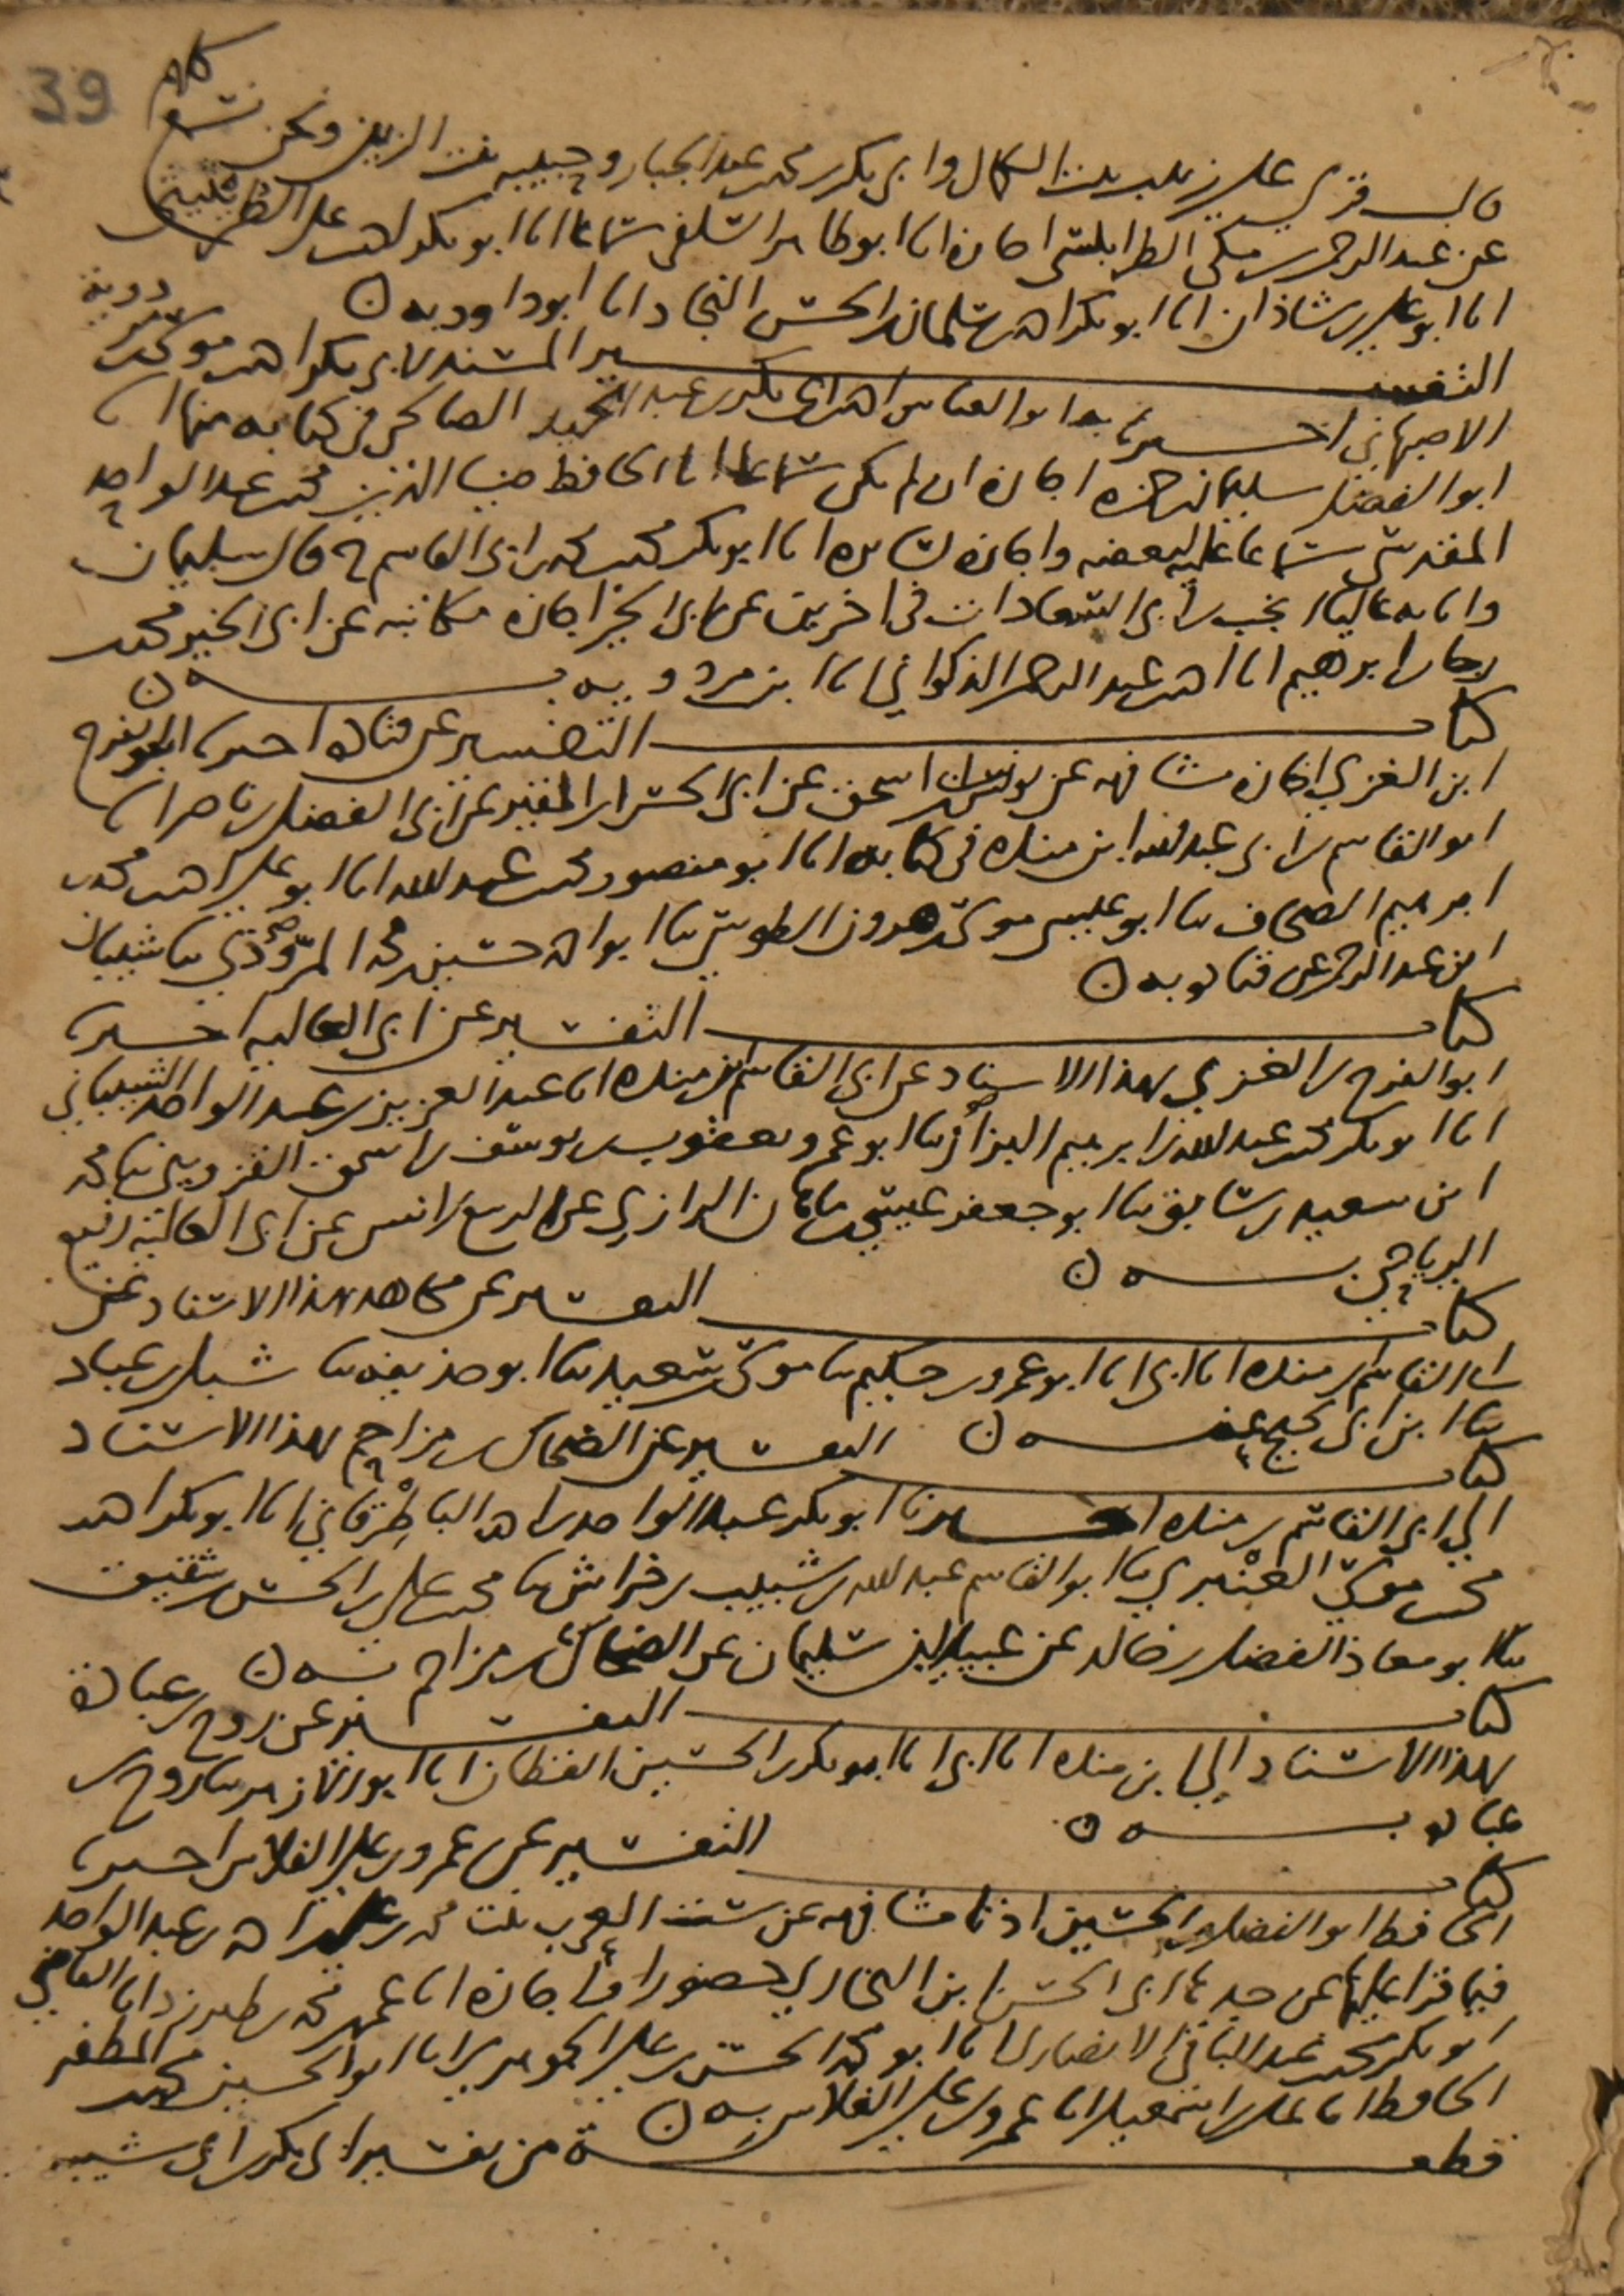 39
قال قرئ على زينب بنت الكمال وابي بكر بن محمد بن عبد الجبار وحبيبة بنت الزين ونحن نسمع كلهم
عن عبد الرحمن بن مكي الطرابلسي اجازة انا ابو طاهر السلفي سماعا انا ابو بكر احمد بن علي الطريثيثي
انا ابو علي بن شاذان انا ابو بكر احمد بن سلمان بن الحسن النجاد انا ابو داود به
التفسير المسند لابي بكر احمد بن موسى بن مردويه
الاصبهاني اخبرنا به ابو العباس احمد بن ابي بكر بن عبد الحميد الصالحي في كتابه منها انا
ابو الفضل سليمان بن حمزة اجازة ان لم يكن سماعا انا الحافظ ضيا الدين محمد بن عبد الواحد
المقدسي سماعا عليه لبعضه واجازة لسايره انا ابو بكر محمد بن محمد بن ابي القاسم ح قال سليمان
وانا به عاليا بن ابي السعادات في اخرين عن ابي الخير اجازة مكاتبة عن ابي الخير محمد
رجا بن ابرهيم انا احمد بن عبد الرحمن الذكواني انا ابن مردويه به
كتاب التفسير عن قتادة اخبرنا ابو الفرج
ابن الغزي اجازة مشافهة عن يونس بن اسحق عن ابي الحسن بن المقير عن ابي الفضل بن ناصر انا
ابو القاسم بن ابي عبد الله ابن منده في كتابه انا ابو منصور محمد بن عبد الله انا ابو علي احمد بن محمد
ابرهيم الصحاف ثنا ابو عيسى موسى بن هرون الطوسي ثنا ابو احمد حسين بن محمد المروذي ثنا شيبان
ابن عبد الرحمن عن قتادة به
كتاب التفسير عن ابي العالية اخبرنا
ابو الفرج بن الغزي بهذا الاسناد عن ابي القاسم بن منده انا عبد العزيز بن عبد الواحد الشيباني
انا ابو بكر محمد بن عبد الله بن ابرهيم البزاز ثنا ابو عمرو يعقوب بن يوسف بن اسحق القزويني ثنا محمد
ابن سعيد بن سابق ثنا ابو جعفر عيسى بن ماهان الرازي عن الربيع بن انس عن ابي العالية رفيع
الرياحي به
كتاب التفسير عن مجاهد بهذا الاسناد عن
القاسم بن منده انا ابي انا ابو عمرو بن حكيم ثنا موسى بن سعيد ثنا ابو حذيفة ثنا شبل بن عباد
ثنا ابن ابي نجيح عنه
كتاب التفسير عن الضحاك بن مزاحم بهذا الاسناد
الى ابي القاسم بن منده اخبرنا ابو بكر عبد الواحد بن احمد الباطرقاني انا ابو بكر احمد
محمد بن موسى العنبري ثنا ابو القاسم عبد الله بن شبيب بن خراش ثنا محمد بن علي بن الحسن بن شقيق
ثنا ابو معاذ الفضل بن خالد عن عبيد بن سليمان عن الضحاك بن مزاحم به
كتاب التفسير عن روح بن عبادة
بهذا الاسناد الى ابن منده انا ابي انا ابو بكر بن الحسين القطان انا ابو الازهر ثنا روح بن
عبادة به
كتاب التفسير عن عمرو بن علي الفلاس اخبرنا
الحافظ ابو الفضل بن الحسين اذنا مشافهة عن ست العرب بنت محمد بن علي بن احمد بن عبد الواحد
فيما قرا عليها عن جدها ابي الحسن ابن البخاري حضورا واجازة انا عمر بن محمد بن طبرزد انا القاضي
ابو بكر محمد بن عبد الباقي الانصاري انا ابو محمد الحسن بن علي الجوهري انا ابو الحسين محمد بن المظفر
الحافظ انا علي بن اسمعيل انا عمرو بن علي الفلاس به
قطعة من تفسير ابي بكر بن ابي شيبة